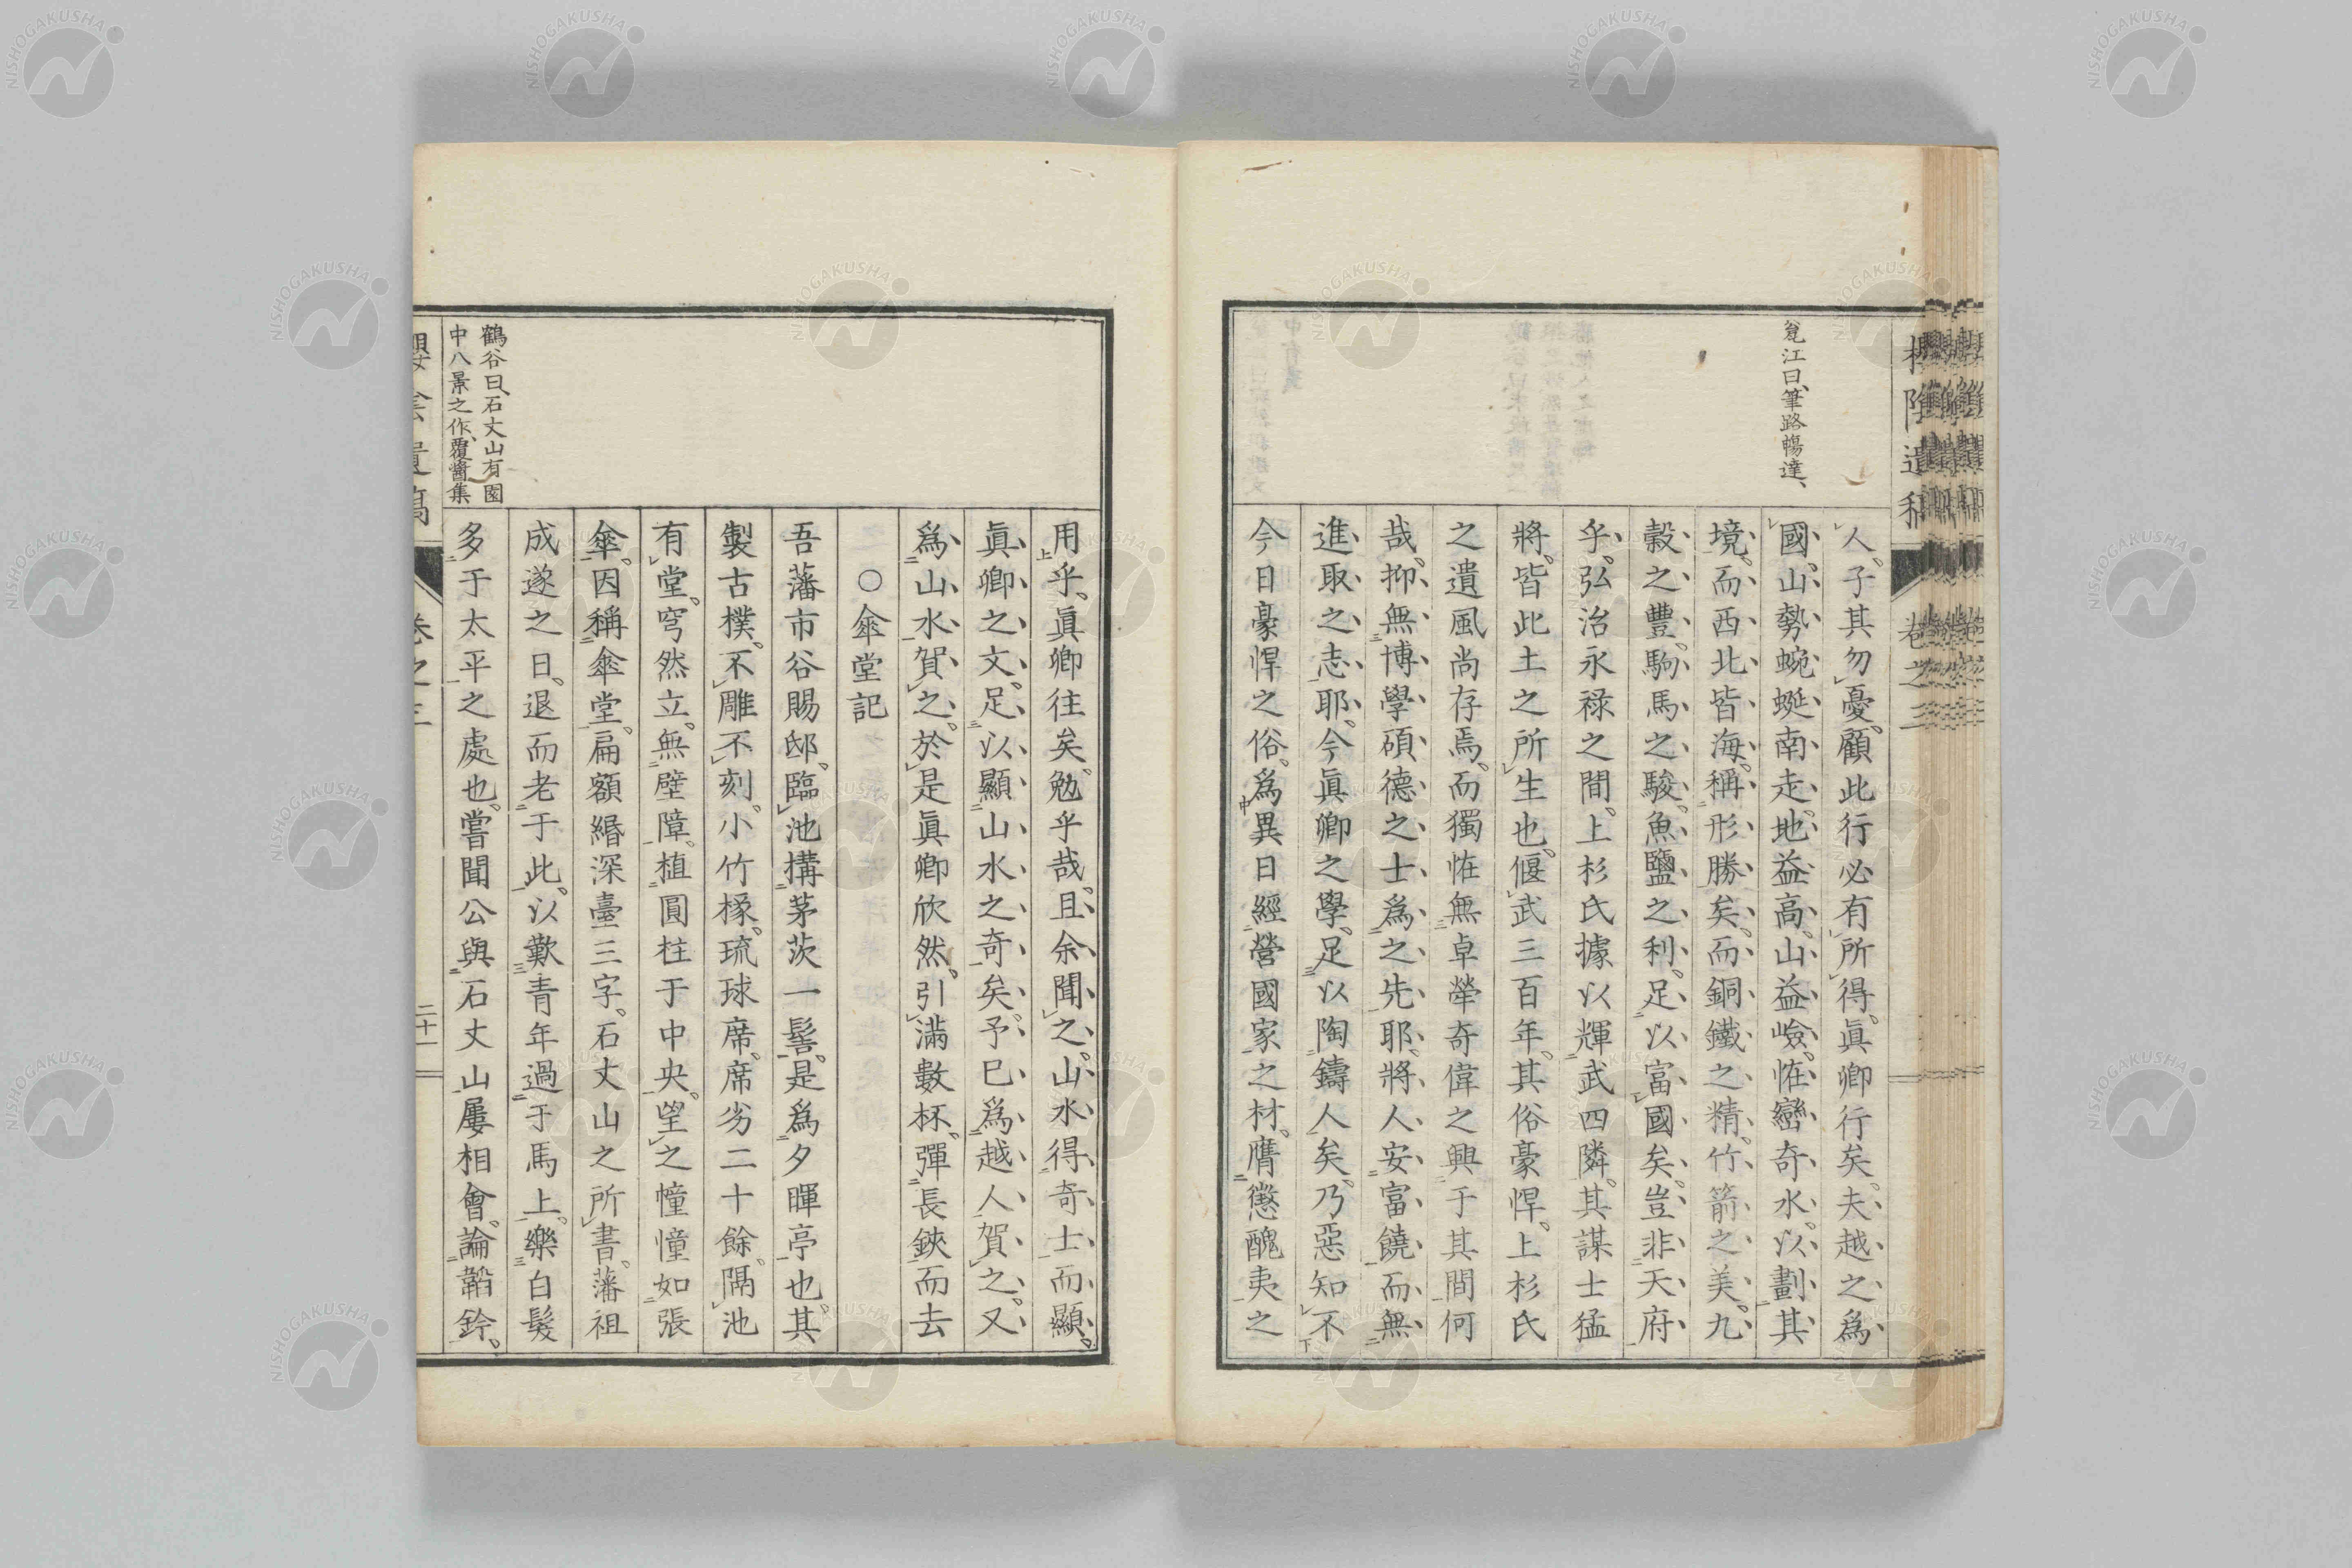 毚江曰、筆路暢達、
人。子其勿憂、顧此行必有所得。眞卿行矣。夫越之爲
國、山勢蜿蜒南走。地益高、山益嶮。恠巒奇水。以劃其
境。而西北皆海。稱形勝矣。而銅鐵之精。竹箭之美。九
穀之豐。駒馬之駿。魚鹽之利。足以富國矣。豈非天府
乎。弘治永禄之間。上杉氏據以輝武四隣。其謀士猛
將。皆此土之所生也。偃武三百年。其俗豪悍。上杉氏
之遺風尚存焉。而獨恠無卓犖奇偉之興于其間何
哉。抑無博學碩德之士爲之先耶。將人安富饒而無
進取之志耶。今眞卿之學。足以陶鑄人矣。乃惡知不
今日豪悍之俗。爲異日經營國家之材。膺懲醜夷之
用乎。眞卿往矣。勉乎哉。且余聞之。山水得奇士而顯。
眞卿之文。足以顯山水之奇矣。予已爲越人賀之。又
爲山水賀之。於是眞卿欣然。引滿數杯。彈長鋏而去
○傘堂記
吾藩市谷賜邸。臨池構茅茨一髻。是爲夕暉亭也。其
製古樸。不雕不刻。小竹椽。琉球席。席劣二十餘。隔池
有堂。穹然立。無壁障。植圓柱于中央。望之憧憧如張
傘。因稱傘堂。扁額緡深臺三字。石丈山之所書。藩祖
成遂之日。退而老于此。以歎青年過于馬上。樂白髮
多于太平之處也。嘗聞公與石丈山屢相會。論韜鈐。
鶴谷曰、石丈山有園
中八景之作、覆醬集
卷之三
二十一